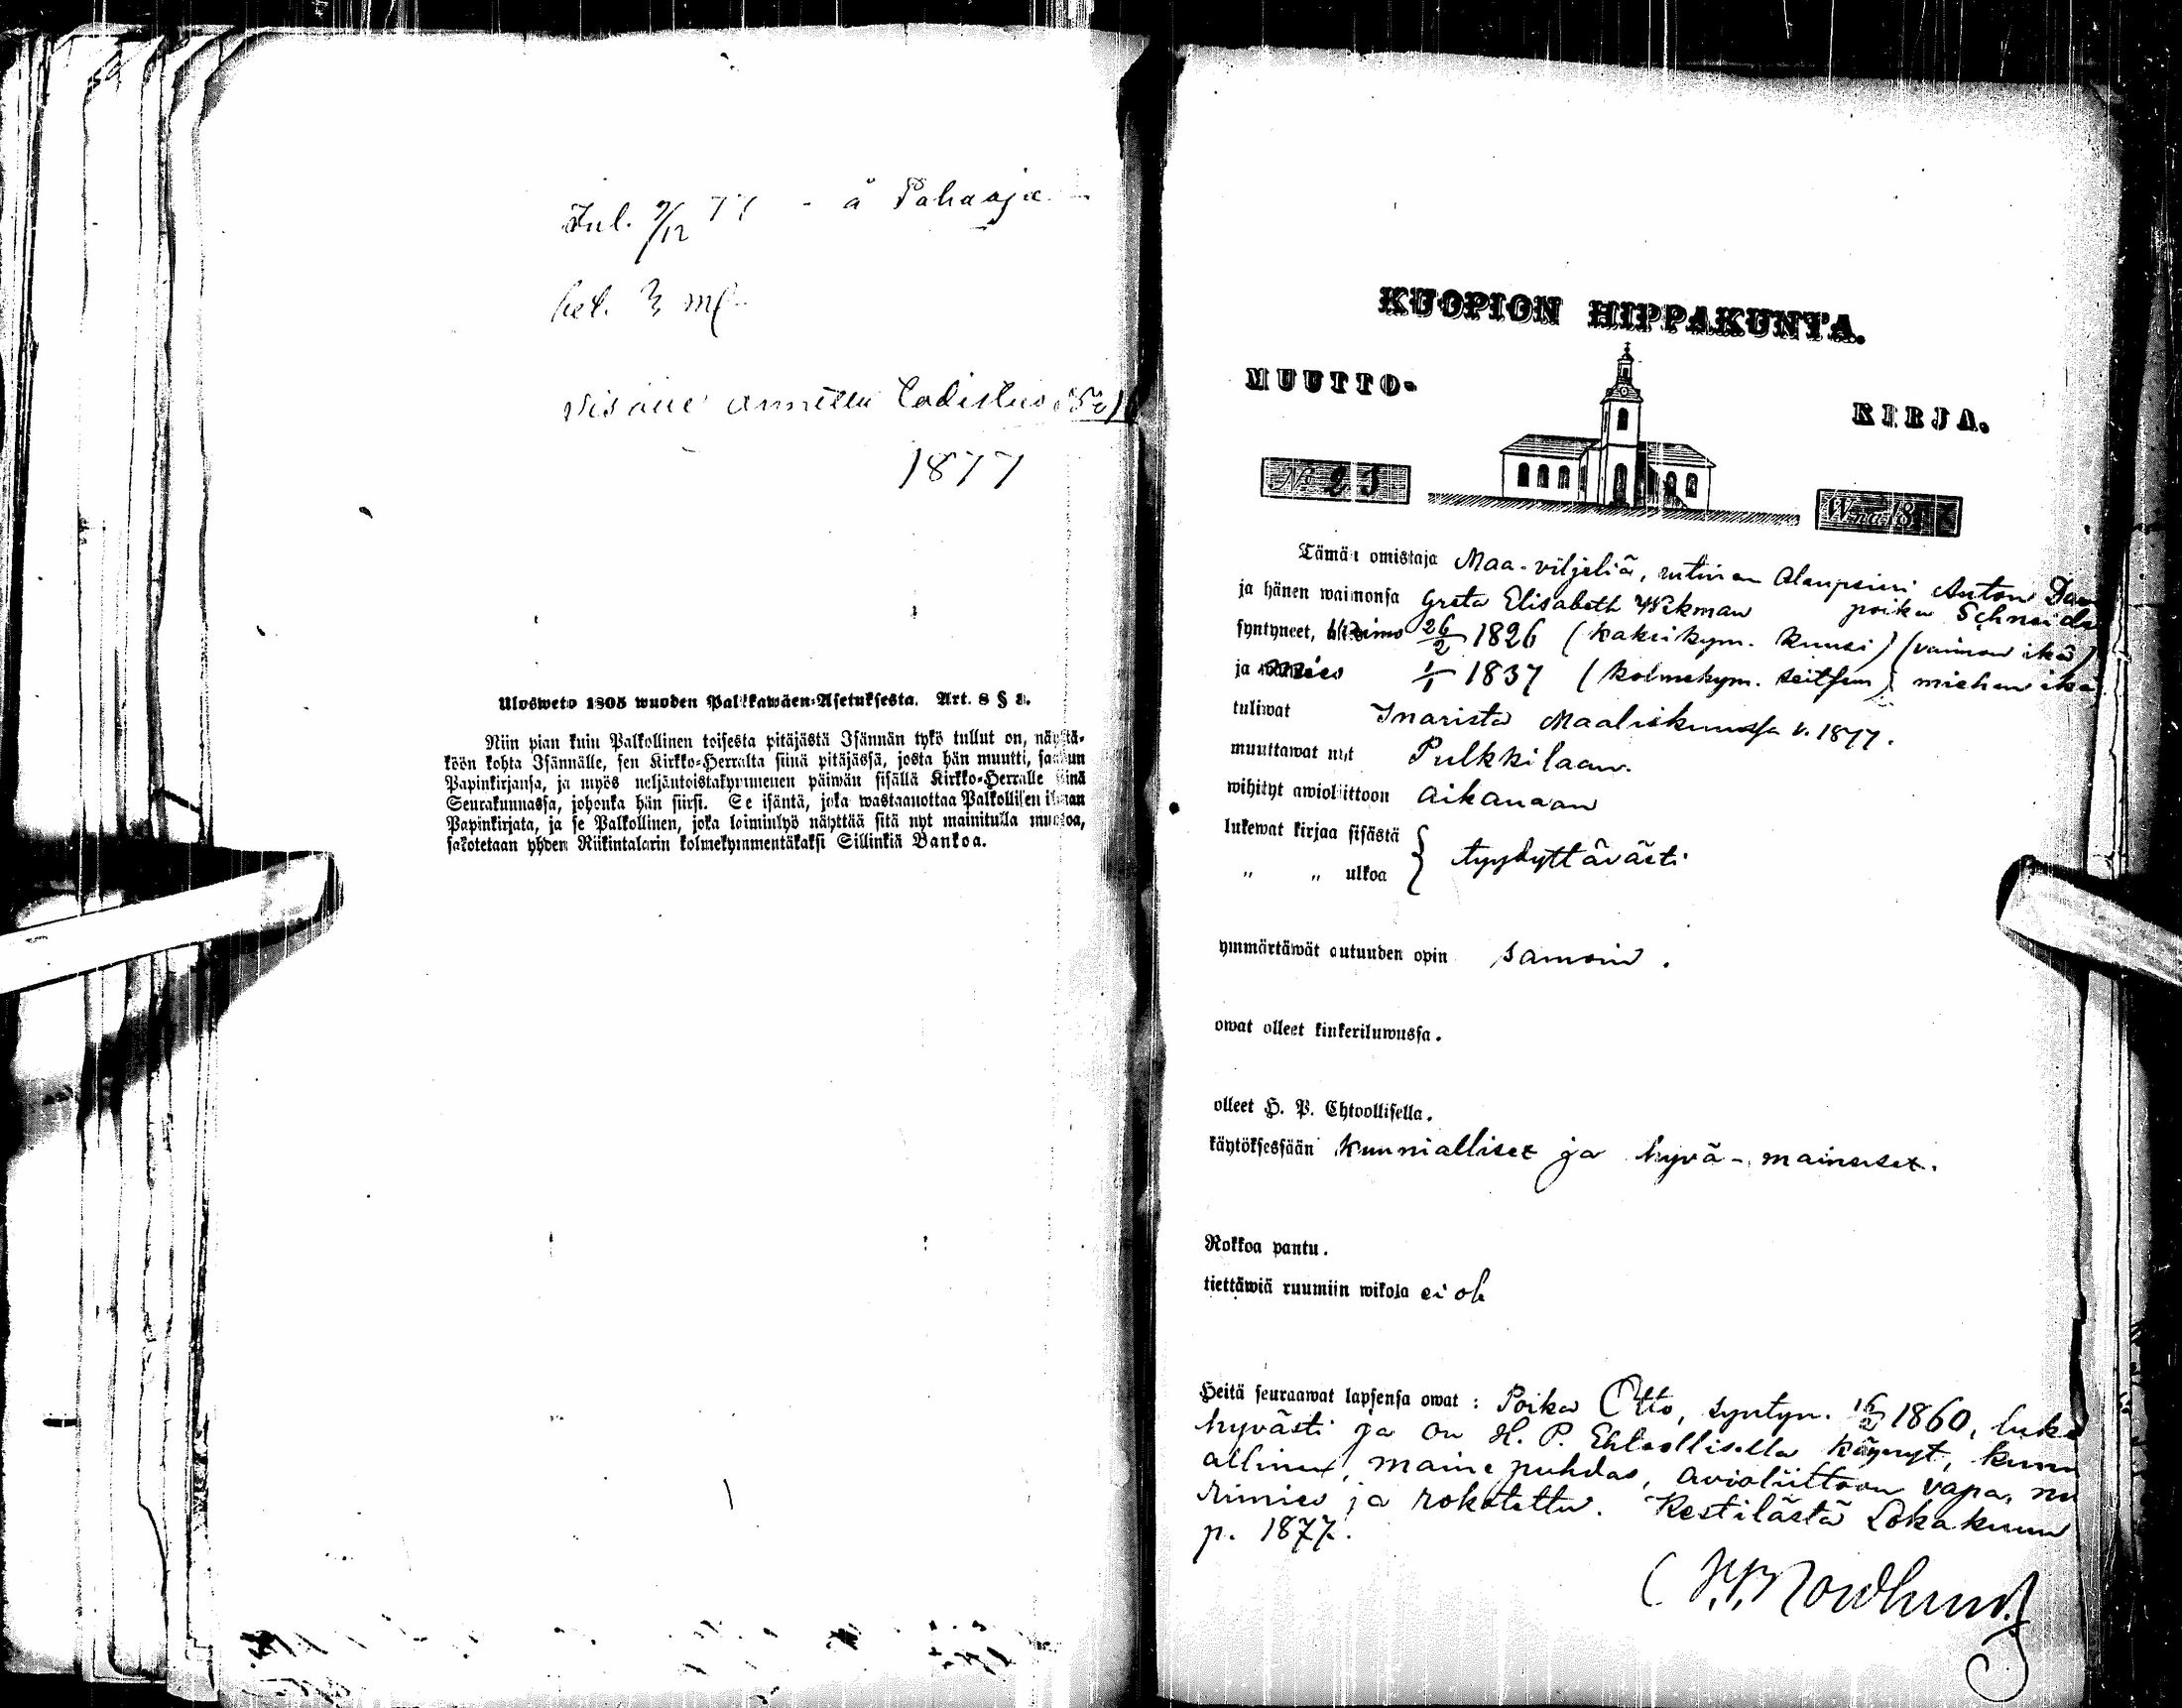 Inl. 9/12 77 - å Pahaoja
bet. 3 mk
1877
Ulosweto 1805 wuoden Palkkawäen-Asetuksesta. Art. 8 § 3.
Niin pian kuin Palkollinen toisesta pitäjästä Isännän tykö tullut on, näyttä-
köön kohta Isännälle, sen Kirkko-Herralta siinä pitäjässä, josta hän muutti, saadun
Papinkirjansa, ja myös neljäntoistakymmenen päiwän sisällä Kirkko-Herralle siinä
Seurakunnassa, johonka hän siirsi. Se isäntä, joka wastaanottaa Palkollisen ilman
Papinkirjata, ja se Palkollinen, joka laiminlyö näyttää sitä nyt mainitulla muotoa,
sakotetaan yhden Riikintalarin kolmekymmentäkaksi Sillinkiä Bankoa.
KUOPION HIPPAKUNTA.
MUUTTO-
KIRJA.
No 23
W:na 18
Tämän omistaja Maa-viljeliä, entinen Alaupsieri Anton
poika Schneide
ja hänen waimonsa Greta Elisabeth Wikman
syntyneet, 26/2 1826 (kaksikym. kuusi) (vaimon ikä)
ja mies 1/1 1837 (kolmekym. seitsem) miehen ikä
tuliwat Inarista Maaliskuussa v. 1877.
muuttawat nyt Pulkkilaan.
wihityt awioliittoon aikanaan
lukewat kirjaa sisästä } tyydyttävästi
„ „ ulkoa
ymmärtäwät autuuden opin samoin.
owat olleet kinkeriluwussa.
olleet H. P. Ehtoollisella.
käytöksessään kunnialliset ja hyvä-maineiset.
Rokkoa pantu.
tiettäwiä ruumiin wikoja ei ole
Heitä seuraawat lapsensa owat : Poika Otto, syntyn. 16/2 1860, luke
hyvästi ja on H. P. Ehtoollisella käynyt, kunn
allinen, maine puhdas, avioliittoon vapa, nu
rimies ja rokotettu. Kestilästä Lokakuun
p. 1877.
Nordlund